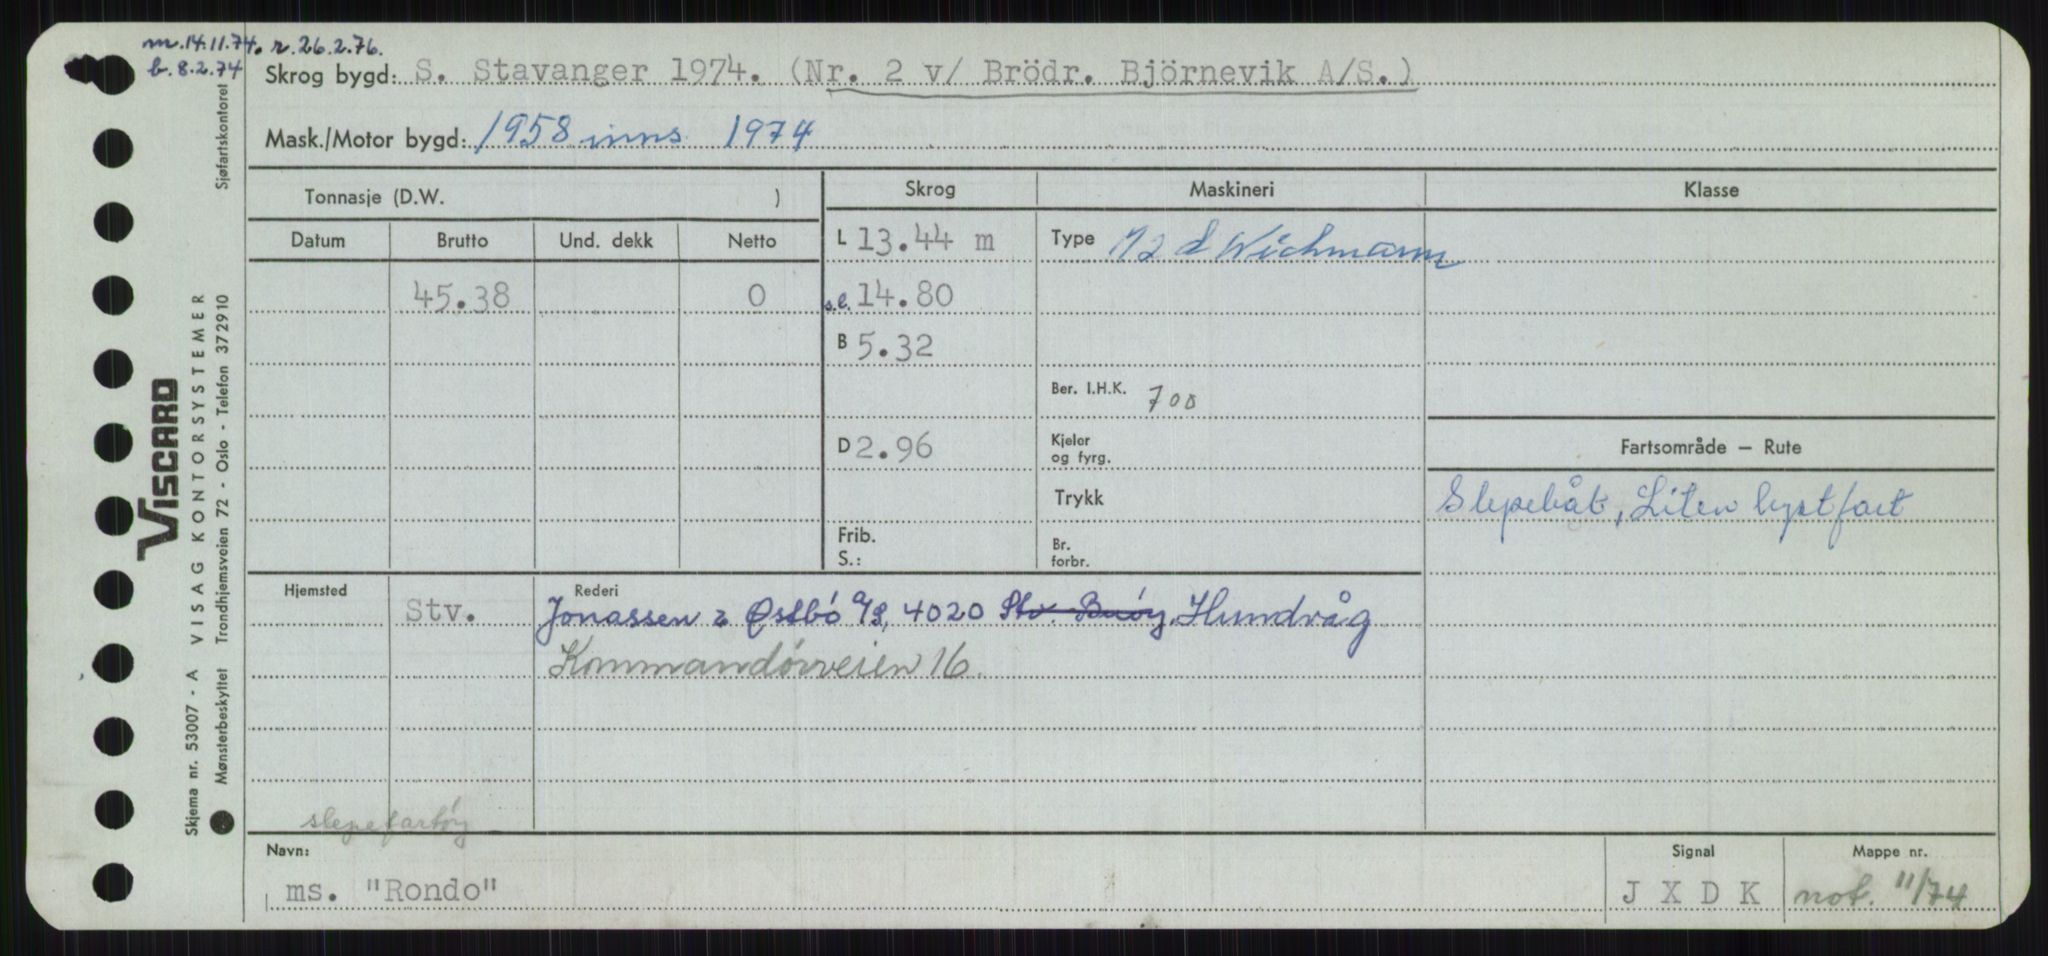 m.14.11.74. r.26.2.76.
b.8.2.74
Skrog bygd: S. Stavanger 1974. (Nr. 2 v/ Brödr. Björnevik A/S.)
Mask./Motor bygd: 1958 inns 1974
Tonnasje (D.W. )
Skrog
Maskineri
Klasse
Datum
Brutto
Und. dekk
Netto
L 13.44 m
Type M2 d Wichmann
45.38
0
s.l. 14.80
B 5.32
Ber. I.H.K. 700
D 2.96
Kjeler
og fyrg.
Fartsområde — Rute
Trykk
Slepebåt, Liten kystfart
Frib.
S.:
Br.
forbr.
Hjemsted
Rederi
Stv.
Jonassen & Østbö A/S, 4020 Stv. Buöy, Hundvåg
Kommandörveien 16.
slepefartöy
Navn:
Signal
Mappe nr.
ms. "Rondo"
J X D K
not. 11/74
VISCARD
Skjema nr. 53007 - A VISAG KONTORSYSTEMER
Mønsterbeskyttet Trondhjemsveien 72 - Oslo - Telefon 372910 Sjøfartskontoret